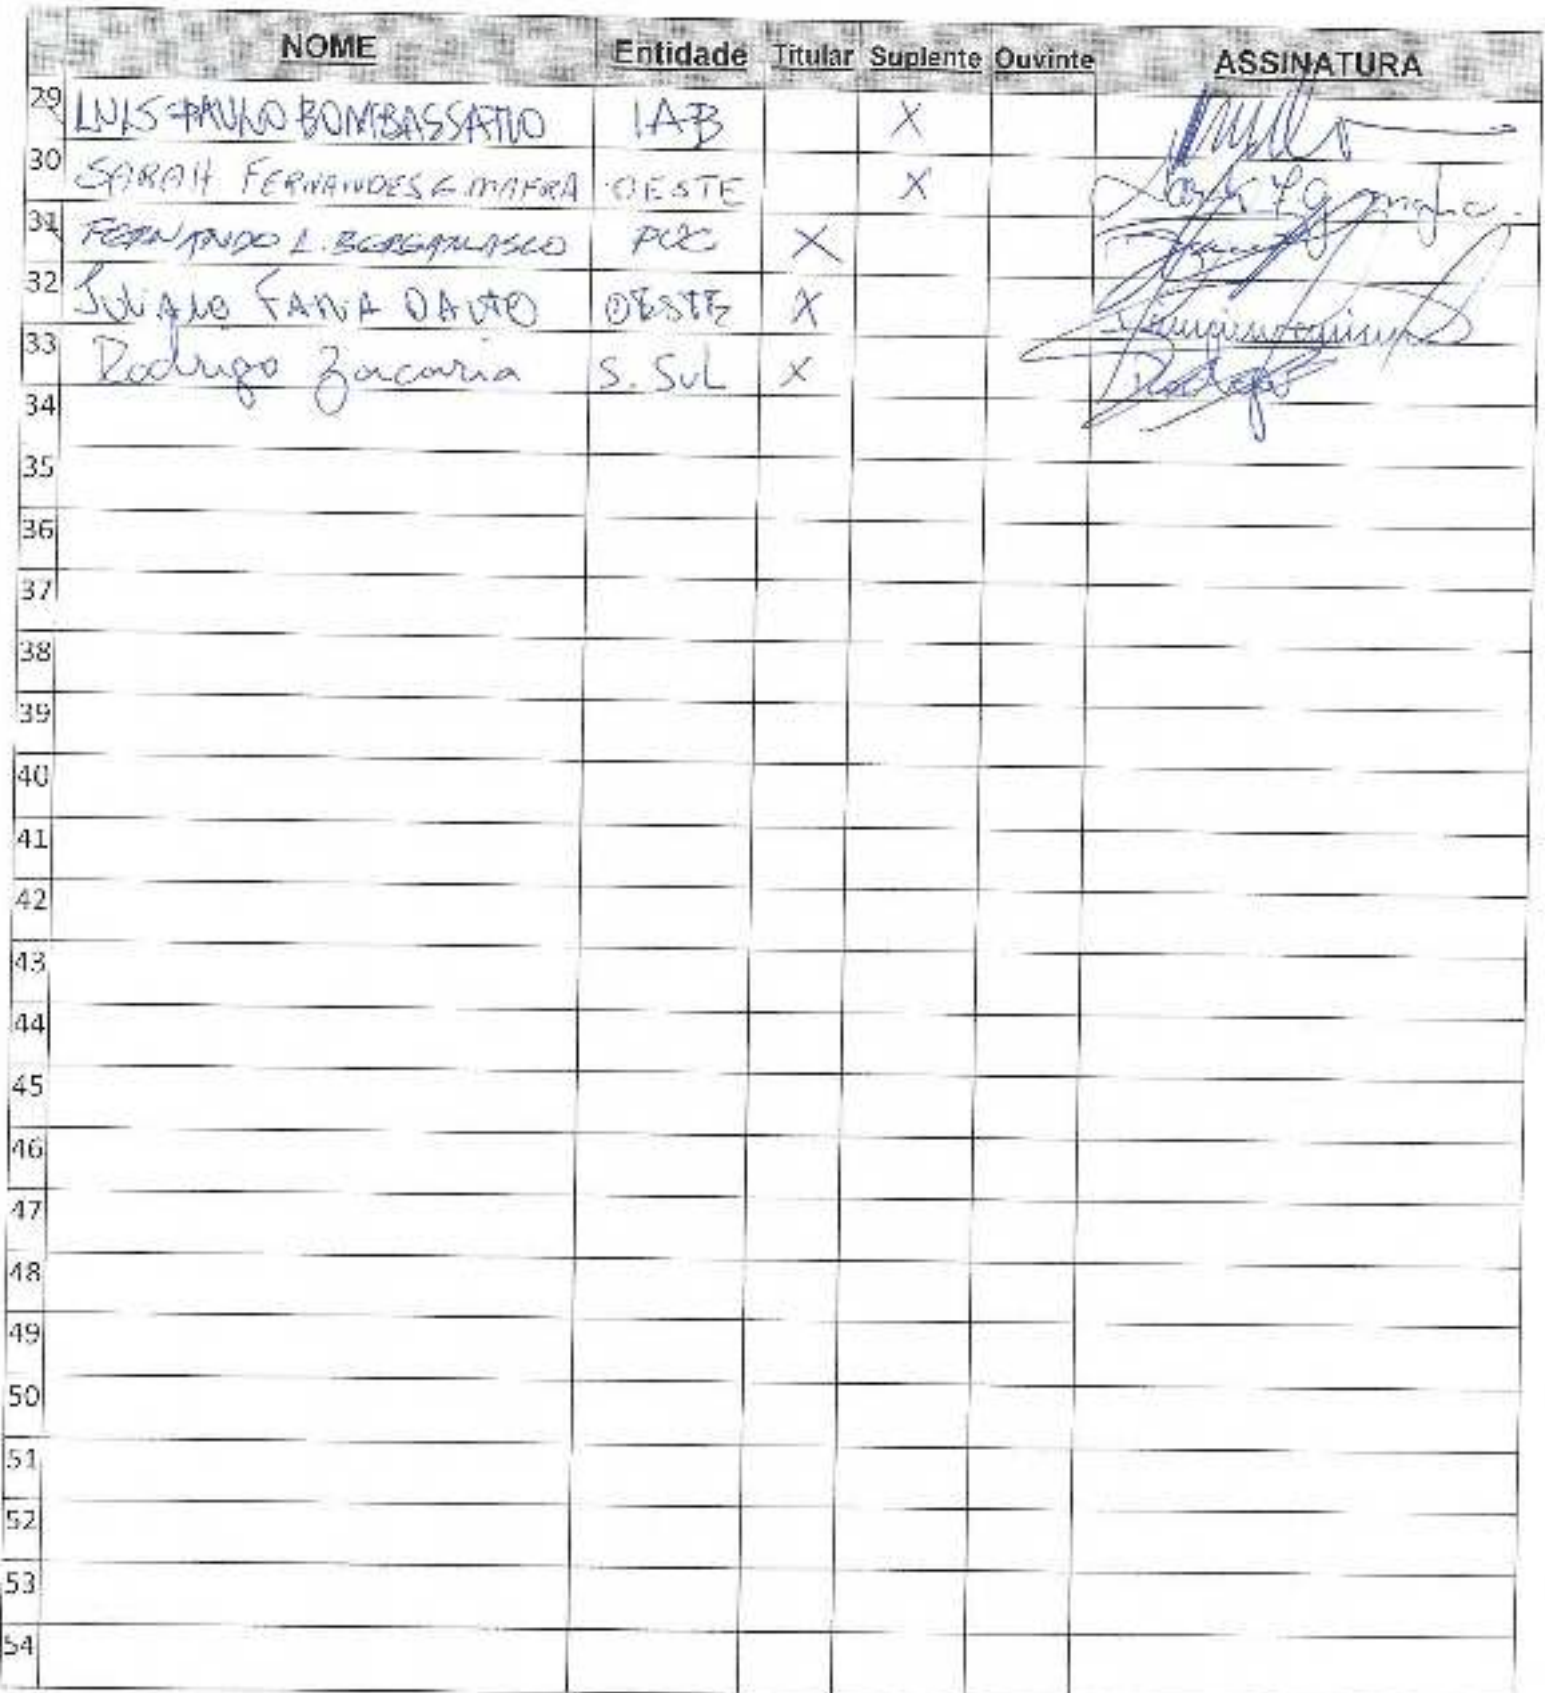 NOME Entidade Titular Suplente Ouvinte ASSINATURA
29 LUIS PAULO BOMBASSATIO IAB X
30 SARAH FERNANDES G MAFRA OESTE X
31 FERNANDO L. BERGAMASCO PUC X
32 FARIA OESTE X
33 Rodrigo Zacaria S. SUL X
34
35
36
37
38
39
40
41
42
43
44
45
46
47
48
49
50
51
52
53
54